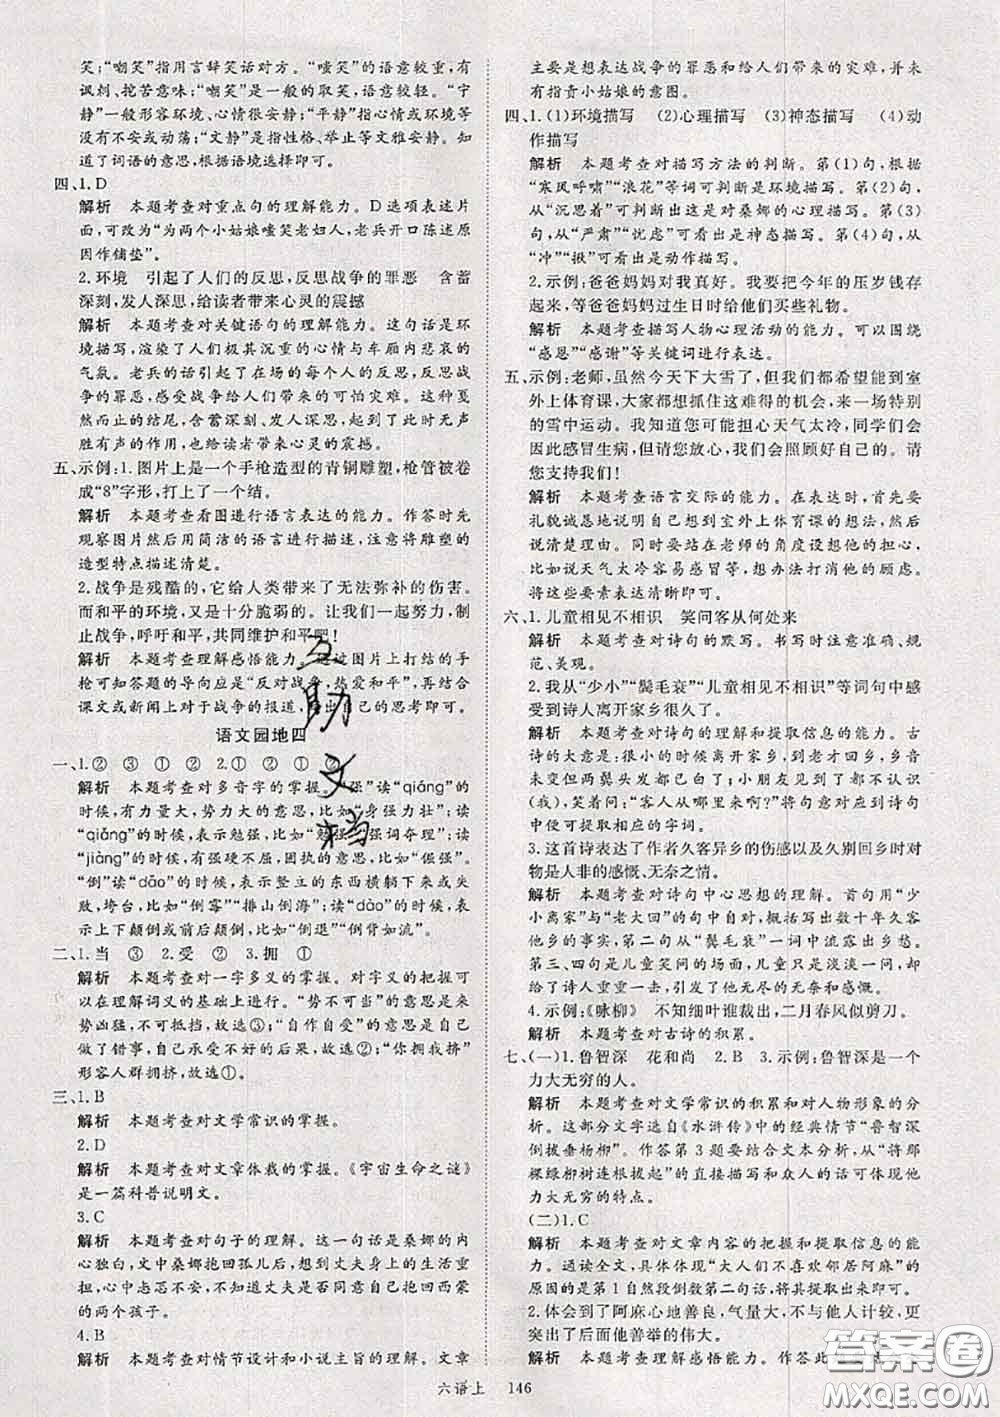 笑;“嘲笑”指用言辞笑话对方。“嗤笑”的语意较重,有
讽刺、挖苦意味;“嘲笑”是一般的取笑,语意较轻。“宁
静”一般形容环境、心情很安静;“平静”指心情或环境等
没有不安或动荡;“文静”是指性格、举止等文雅安静。知
道了词语的意思,根据语境选择即可。
四、1.D
解析 本题考查对重点句的理解能力。D选项表述片
面,可改为“为两个小姑娘嗤笑老妇人,老兵开口陈述原
因作铺垫”。
2.环境 引起了人们的反思,反思战争的罪恶 含蓄
深刻,发人深思,给读者带来心灵的震撼
解析 本题考查对关键语句的理解能力。这句话是环
境描写,渲染了人们极其沉重的心情与车厢内悲哀的
气氛。老兵的话引起了在场的每个人的反思,反思
战争的罪恶,感受战争给人们带来的可怕灾难。这种戛
然而止的结尾,含蓄深刻、发人深思,起到了此时无声
胜有声的作用,也给读者带来心灵的震撼。
五、示例:1.图片上是一个手枪造型的青铜雕塑,枪管被卷
成“8”字形,打上了一个结。
解析 本题考查看图进行语言表达的能力。作答时先
观察图片然后用简洁的语言进行描述,注意将雕塑的
造型特点描述清楚。
2.战争是残酷的,它给人类带来了无法弥补的伤害。
而和平的环境,又是十分脆弱的。让我们一起努力,制
止战争,呼吁和平,共同维护和平吧!
解析 本题考查理解感悟能力。通过图片上打结的手
枪可知答题的导向应是“反对战争,热爱和平”,再结合
课文或新闻上对于战争的报道,写出自己的思考即可。
语文园地四
一、1.② ③ ① ② 2.① ② ① ②
解析 本题考查对多音字的掌握。“强”读“qiáng”的
时候,有力量大,势力大的意思,比如“身强力壮”;读
“qiǎng”的时候,表示勉强,比如“勉强”“强词夺理”;读
“jiàng”的时候,有强硬不屈,固执的意思,比如“倔强”。
“倒”读“dǎo”的时候,表示竖立的东西横躺下来或失
败,垮台,比如“倒霉”“排山倒海”;读“dào”的时候,表示
上下颠倒或前后颠倒,比如“倒退”“倒背如流”。
二、1.当 ③ 2.受 ② 3.拥 ①
解析 本题考查对一字多义的掌握。对字义的把握可
以在理解词义的基础上进行。“势不可当”的意思是来
势凶猛,不可抵挡,故选③;“自作自受”的意思是自己
做了错事,自己承受不好的后果,故选②;“你拥我挤”
形容人群拥挤,故选①。
三、1.B
解析 本题考查对文学常识的掌握。
2.D
解析 本题考查对文章体裁的掌握。《宇宙生命之谜》
是一篇科普说明文。
3.C
解析 本题考查对句子的理解。这一句话是桑娜的内
心独白,文中桑娜抱回孤儿后,想到丈夫身上的生活重
担,心中忐忑不安,不知道丈夫是否同意自己抱回西蒙
的两个孩子。
4.B
解析 本题考查对情节设计和小说主旨的理解。文章
主要是想表达战争的罪恶和给人们带来的灾难,并未
有指责小姑娘的意图。
四、1.(1)环境描写 (2)心理描写 (3)神态描写 (4)动
作描写
解析 本题考查对描写方法的判断。第(1)句,根据
“寒风呼啸”“浪花”等词可判断是环境描写。第(2)句,
从“沉思着”可判断出这是对桑娜的心理描写。第(3)
句,从“严肃”“忧虑”可看出是神态描写。第(4)句,从
“冲”“揪”可看出是动作描写。
2.示例:爸爸妈妈对我真好。我要把今年的压岁钱存
起来,等爸爸妈妈过生日时给他们买些礼物。
解析 本题考查描写人物心理活动的能力。可以围绕
“感恩”“感谢”等关键词进行表达。
五、示例:老师,虽然今天下大雪了,但我们都希望能到室
外上体育课,大家都想抓住这难得的机会,来一场特别
的雪中运动。我知道您可能担心天气太冷,同学们会
因此感冒生病,但我们会照顾好自己的。请
您支持我们!
解析 本题考查语言交际的能力。与老师对话时,首先要
礼貌诚恳地说明自己想到室外上体育课的想法,然后
说出理由。同时要站在老师的角度设想他的担心,
比如说天气太冷容易感冒等,想办法打消他的顾虑。
将这些要素表达清晰即可。
六、1.儿童相见不相识 笑问客从何处来
解析 本题考查对诗句的默写。书写时注意准确、规
范、美观。
2.我从“少小”“鬓毛衰”“儿童相见不相识”等词句中感
受到诗人离开家乡很久了。
解析 本题考查对诗句的理解和提取信息的能力。古
诗的大意是很小的时候离开家乡,到老才回家,乡音
未变但两鬓头发都已白了;小朋友见到了都不认识
(我),笑着问:“客人从哪里来啊?”将句意对应到诗句
中便可提取相应的字词。
3.这首诗表达了作者久客异乡的伤感以及久别回乡时对
物是人非的感慨、无奈之情。
解析 本题考查对诗句中心思想的理解。首句用“少
小离家”与“老大回”的句中自对,概括写出数十年久客
他乡的事实,第二句从“鬓毛衰”一词中流露出乡愁。
第三、四句是儿童笑问的场面,儿童只是淡淡一问,却
给了诗人重重一击,引发了他无尽的无奈和感慨。
4.示例:《咏柳》 不知细叶谁裁出,二月春风似剪刀。
解析 本题考查对古诗的积累。
七、(一)1.鲁智深 花和尚 2.B 3.示例:鲁智深是一个
力大无穷的人。
解析 本题考查对文学常识的积累和对人物形象的分
析。这部分文字选自《水浒传》中的经典情节“鲁智深
倒拔垂杨柳”。作答第3题要结合文本分析,从“将那
棵绿柳树连根拔起”的直接描写和众人的话可体现他
力大无穷的特点。
(二)1.C
解析 本题考查对文章内容的把握和提取信息的能
力。通读全文,具体体现“大人们不喜欢邻居阿麻”的
原因的是第1自然段倒数第二句话,将其概括即可。
2.体会到了阿麻心地善良,气量大,不与他人计较,更
突出了后面他善举的伟大。
解析 本题考查理解感悟能力。作答此
六语上 146
互助文档
答案圈
MXQE.COM